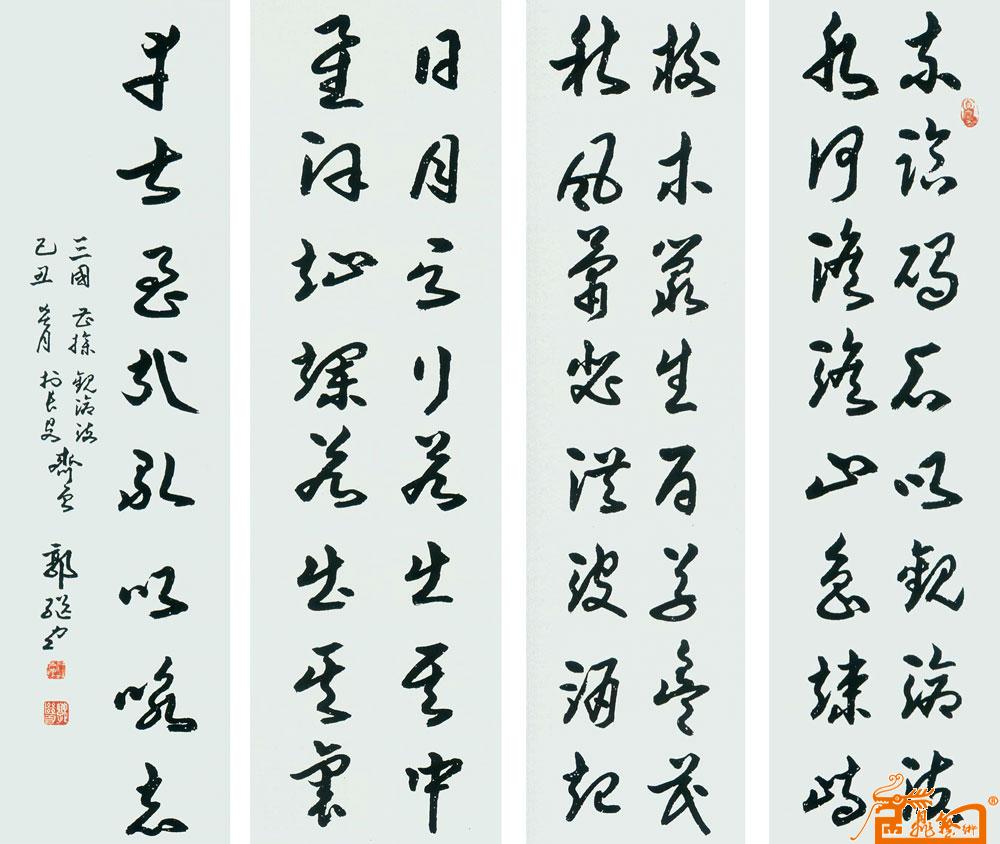 東臨碣石以觀滄海
水何澹澹山島竦峙
樹木叢生百草豐茂
秋風蕭瑟洪波涌起
日月之行若出其中
星漢燦爛若出其裏
幸甚至哉歌以詠志
三國 曹操 觀滄海
己丑 月 於長安 郭